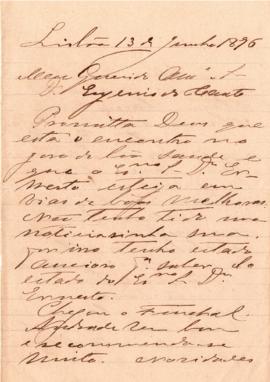 Lisbôa 13 de Junho 1896
Meu Querido Am.º
Eugenio do Canto
Permitta Deus que
esta o encontre no
goso de boa saude e
que o Dr. Er-
nesto esteja em
vias de boas melhoras.
Não tenho tido uma
noticiasinha sua
por isso tenho estado
ancioso p.ª saber do
estado do Dr.
Ernesto.
Chegou o Funchal.
Andrade vem bom
e se recommenda
muito. Novidades